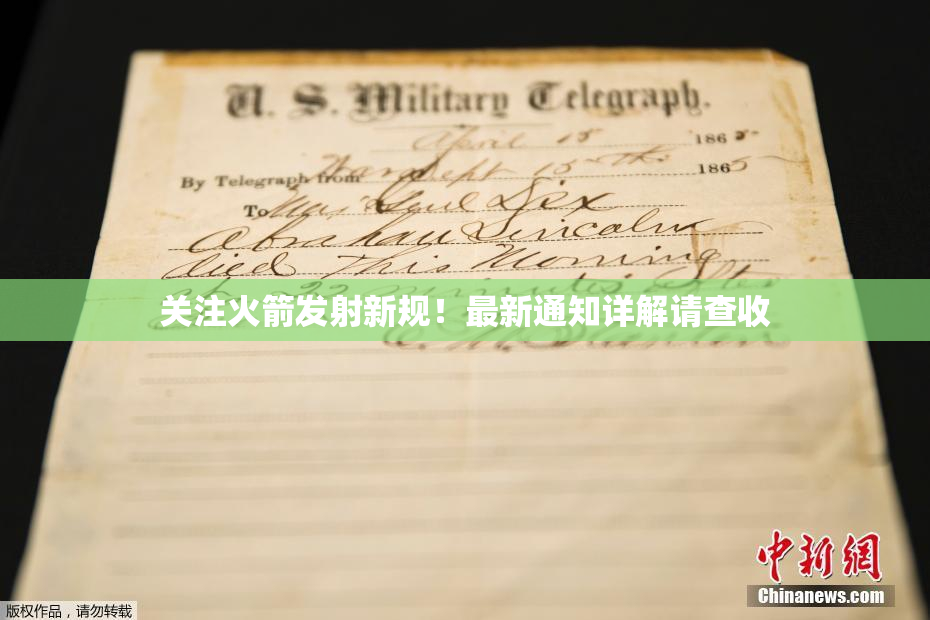 U. S. Military Telegraph.
April 15 1865
By Telegraph from War Dept 15th 1865
To Maj Genl Dix
Abraham Lincoln
died this Morning
at 22 minutes after
关注火箭发射新规！最新通知详解请查收
E. M. Stanton
中新网
Chinanews.com
版权作品，请勿转载